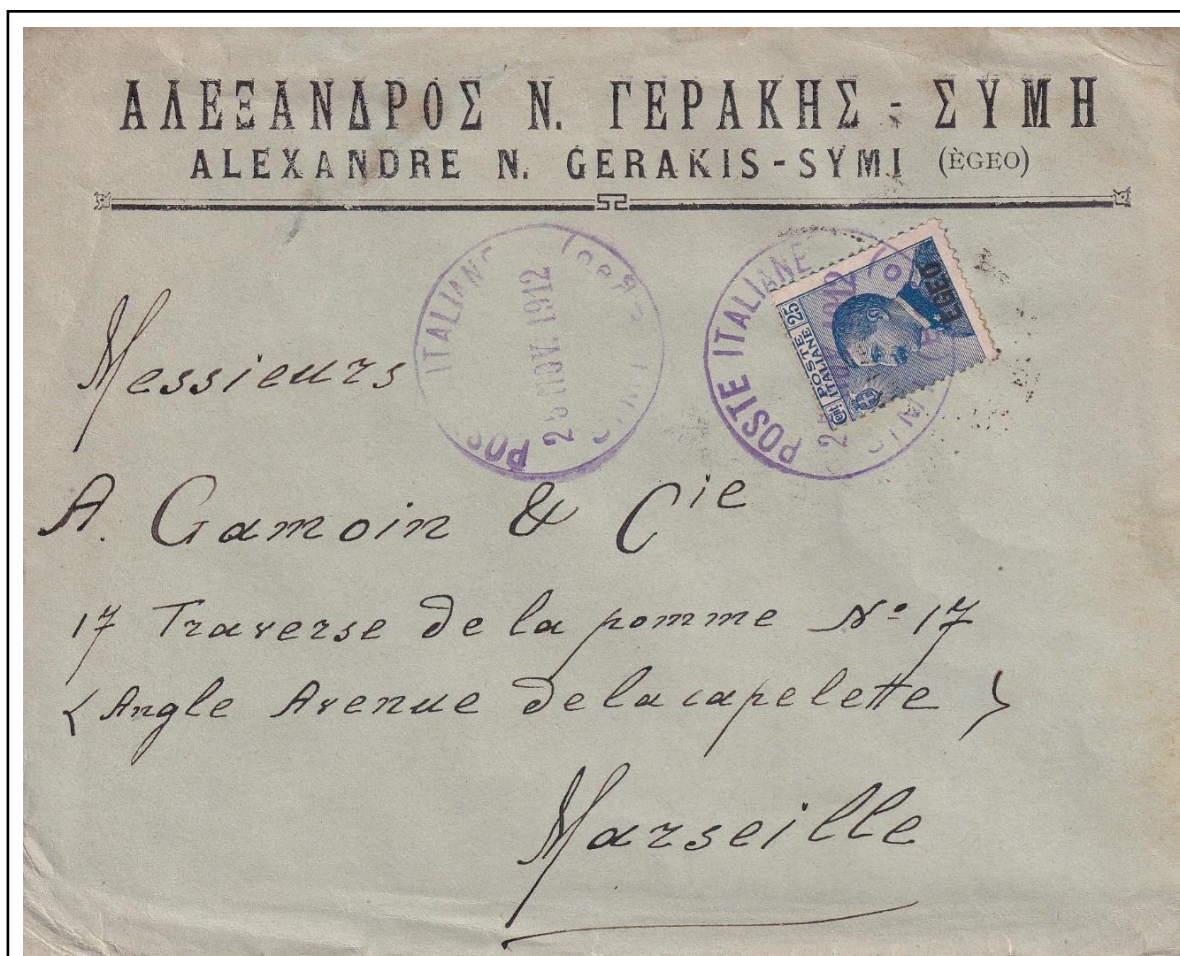 ΑΛΕΞΑΝΔΡΟΣ Ν. ΓΕΡΑΚΗΣ - ΣΥΜΗ
ALEXANDRE N. GERAKIS - SYMI (ÈGEO)
POSTE ITALIANE
NOV. 1912
POSTE ITALIANE
25 POSTE ITALIANE
EGEO
Messieurs
A. Gamoin & Cie
17 Traverse de la pomme No 17
(Angle Avenue de la capelette)
Marseille